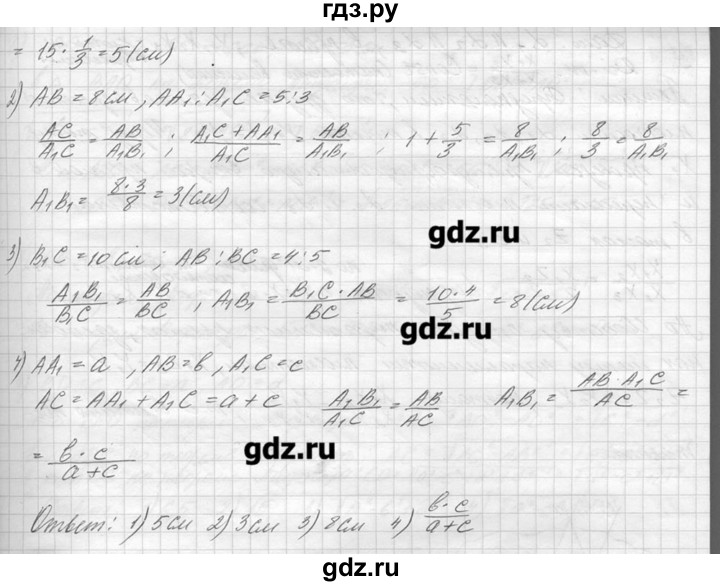 гдз.ру
= 15 · 1/3 = 5 (см)
2) AB = 8 см, AA₁ : A₁C = 5 : 3
AC/A₁C = AB/A₁B₁ ; (A₁C + AA₁)/A₁C = AB/A₁B₁ ; 1 + 5/3 = 8/A₁B₁ ; 8/3 = 8/A₁B₁
A₁B₁ = (8 · 3)/8 = 3 (см)
gdz.ru
3) B₁C = 10 см ; AB : BC = 4 : 5
A₁B₁/B₁C = AB/BC , A₁B₁ = (B₁C · AB)/BC = (10 · 4)/5 = 8 (см)
gdz.ru
4) AA₁ = a , AB = b , A₁C = c
AC = AA₁ + A₁C = a + c A₁B₁/A₁C = AB/AC A₁B₁ = (AB · A₁C)/AC =
= (b · c)/(a + c)
gdz.ru
Ответ: 1) 5 см 2) 3 см 3) 8 см 4) (b · c)/(a + c)
gdz.ru